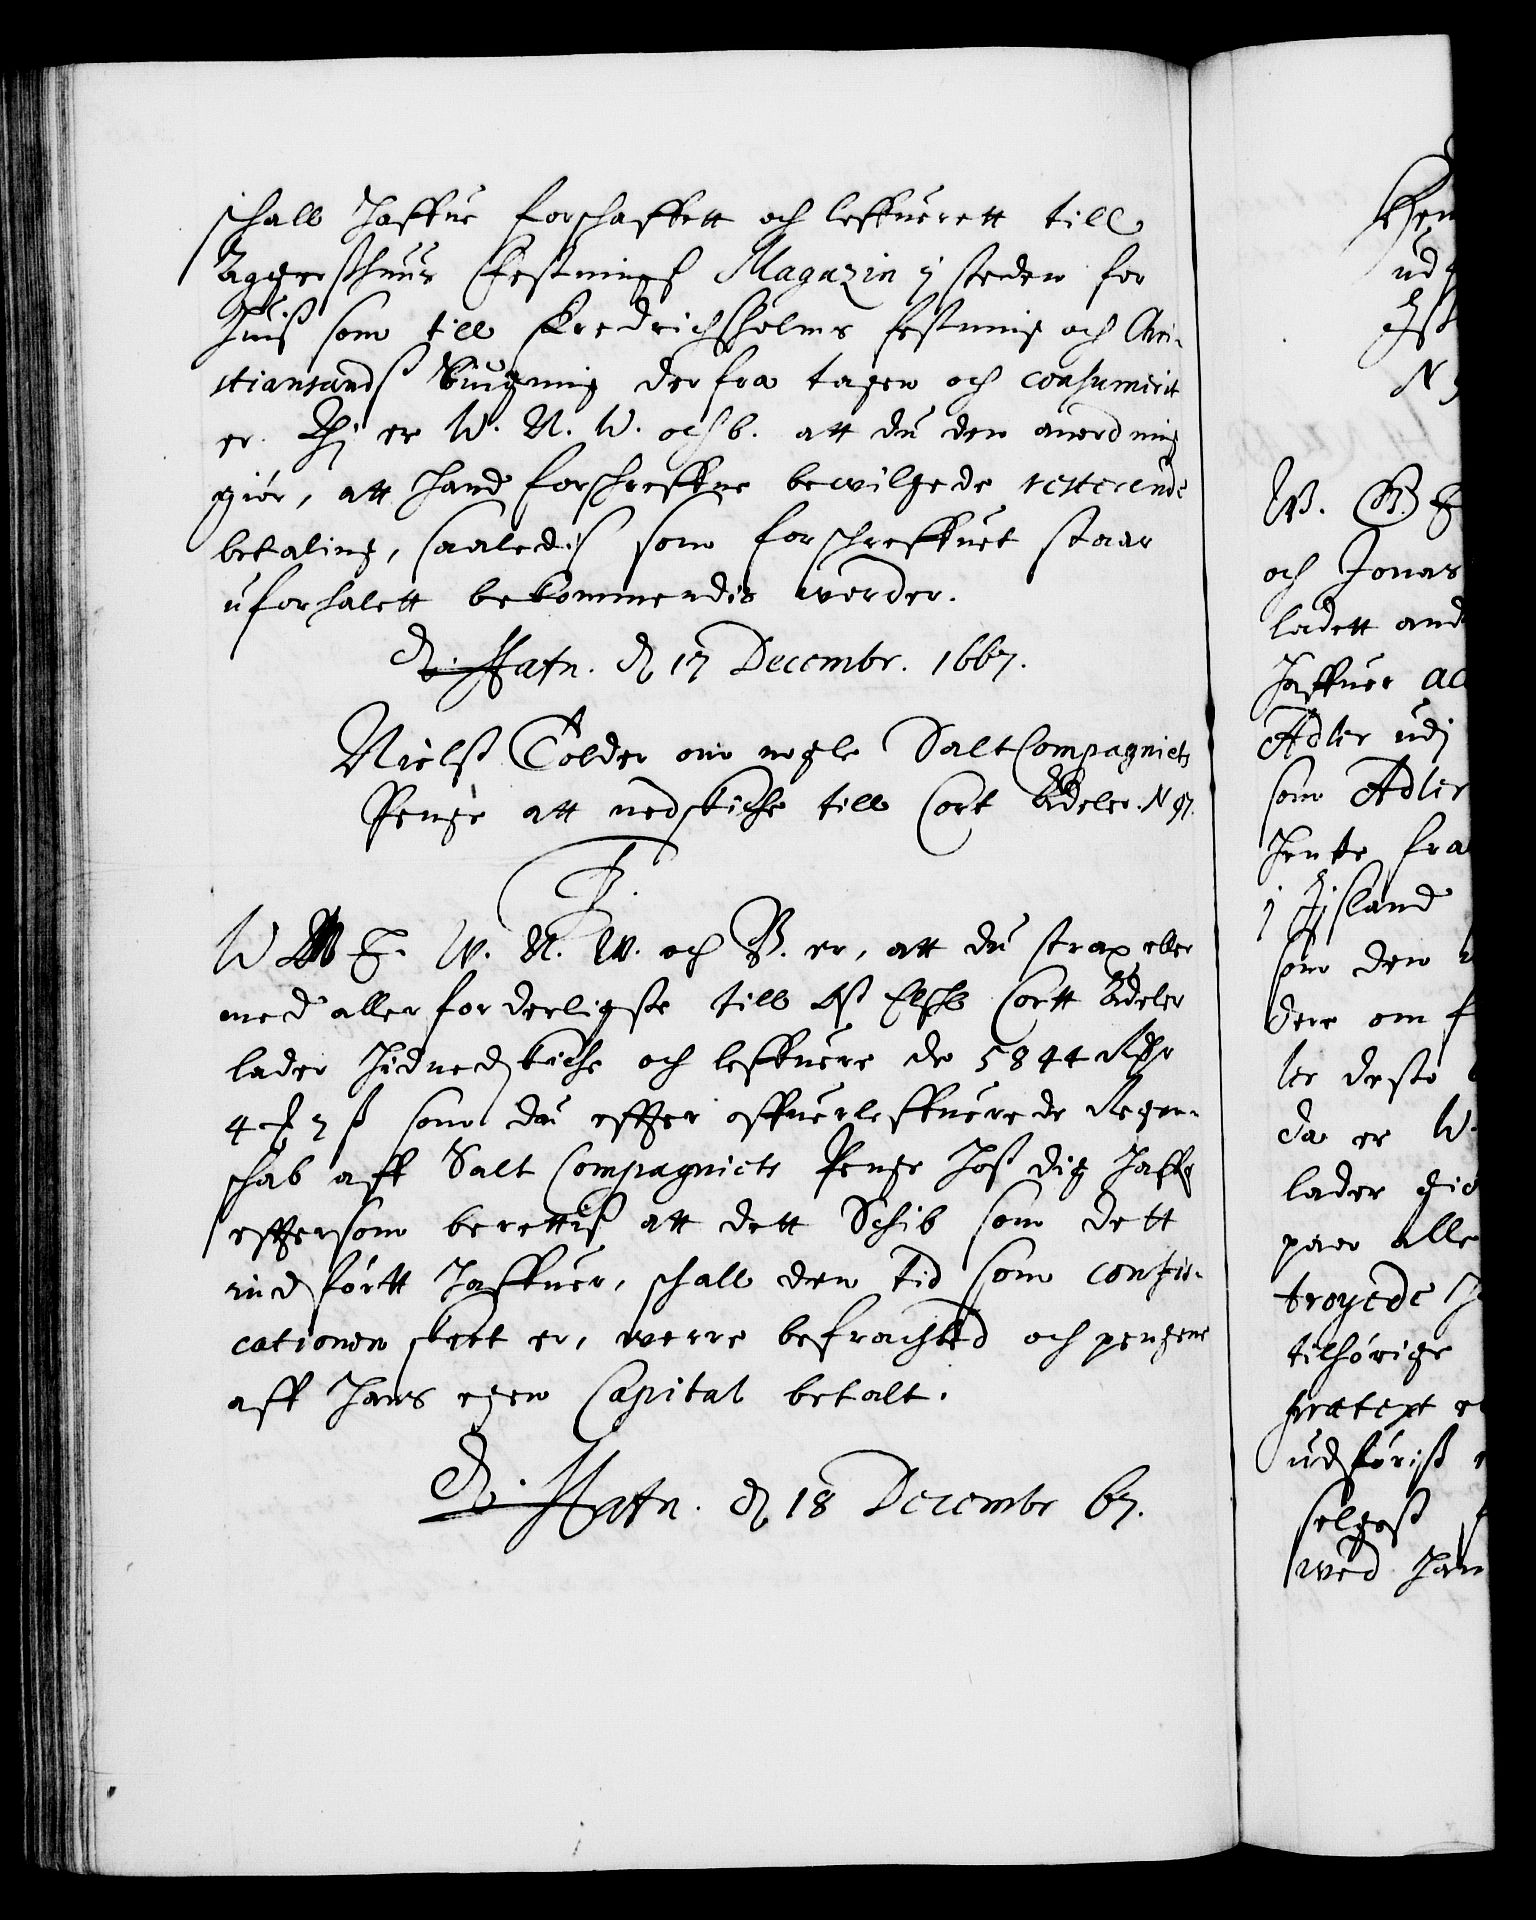 schall haffue forschaffett och leffuerett till
Aggershuus Festnings Magazin j steden for
huis som till Fredrichsholms festning och Chri-
stiansands bugning derfra tagen och consumerit
er. Thj er W. N. W. och b. att du den anordning
giör, att hand forschreffne bewilgede resterende
betaling, saaledis som forschreffuet staar
uforhalett bekommendis worder.
Hafn. d 17 Decembr. 1667.
Nielss Tolder om nogle Salt Compagniets
Penge att nedskiche till Cort Adeler. N 97.
F.
W F. W. N. W. och B. er, att du strax eller
med allerforderligste till Oss Elsk Cortt Adeler
lader hidnedskiche och leffuere de 5844 Rdr
4 ß som du effter offuerleffuerede Regen-
schab aff Salt Compagniets Penge hoss dig haffr
effttersom berettiss att dett Schib som dett
indförtt haffuer, schall den tid som confis-
cationen skeet er, werre befrachted och pengene
aff hans egen Capital betalt.
Hafn. d 18 Decembr 67.
ud
N
W. G. F
och Jonas
ladett and
haffuer ac
Adler udj
som Adler
hente fra
j Jsland
som den
dere om f
ler deste
da er W.
lader giö
paa alle
troyede
tilhörige
prætext
udföriss
selgess
wed han